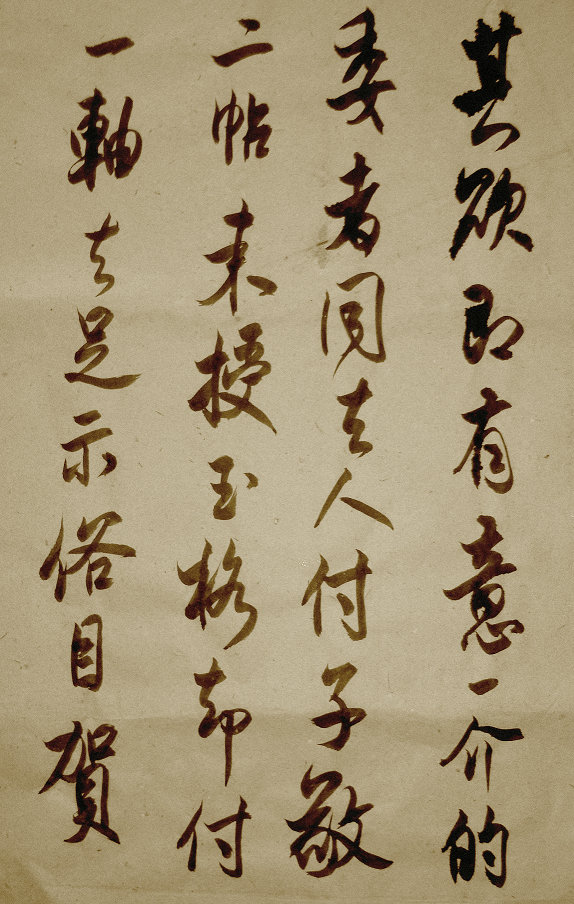 其欲即有意一介的
委者同去人付子敬
二帖来授玉格却付
一軸去足示俗目賀